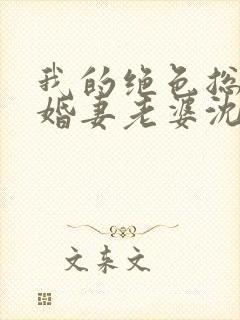 我的绝色总
婚妻老婆沈
文东文